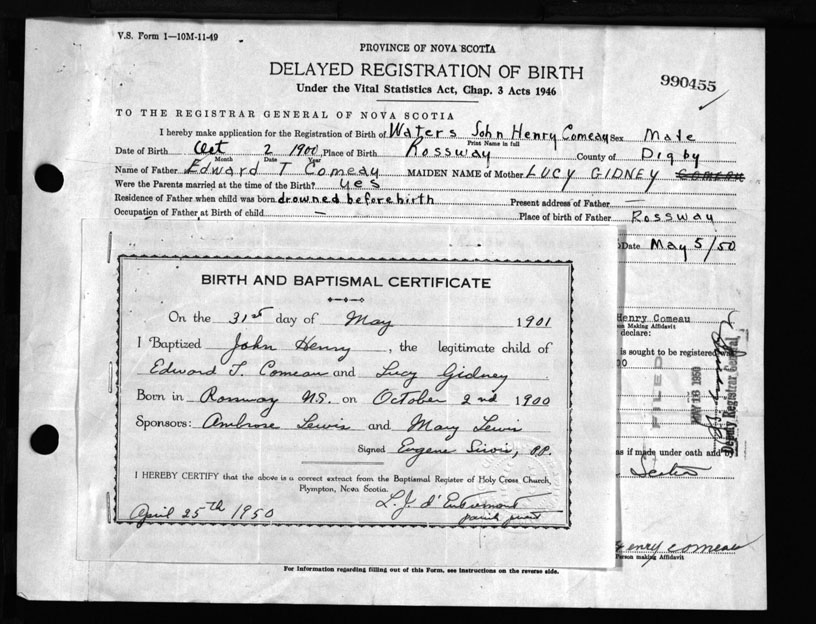 V.S. Form 1—10M-11-49
PROVINCE OF NOVA SCOTIA
DELAYED REGISTRATION OF BIRTH
990455
Under the Vital Statistics Act, Chap. 3 Acts 1946
TO THE REGISTRAR GENERAL OF NOVA SCOTIA
I hereby make application for the Registration of Birth of Waters John Henry Comeau Sex Male
Print Name in full
Date of Birth Oct 2 1900, Place of Birth Rossway County of Digby
Month Date Year
Name of Father Edward T Comeau MAIDEN NAME of Mother LUCY GIDNEY COMEAU
Were the Parents married at the time of the Birth? yes
Residence of Father when child was born drowned before birth Present address of Father —
Occupation of Father at Birth of child — Place of birth of Father Rossway
Date May 5/50
BIRTH AND BAPTISMAL CERTIFICATE
On the 31st day of May 1901
I Baptized John Henry, the legitimate child of
Edward T. Comeau and Lucy Gidney
Born in Rossway N.S. on October 2nd 1900
Sponsors: Ambrose Lewis and Mary Lewis
Signed Eugene Sirois, PP.
I HEREBY CERTIFY that the above is a correct extract from the Baptismal Register of Holy Cross Church,
Plympton, Nova Scotia.
L. J. d'Entremont
April 25th 1950 parish priest
Henry Comeau
on Making Affidavit
declare:
is sought to be registered was
00
FILED
MAY 16 1950
Deputy Registrar General
as if made under oath and
Scotia
Henry Comeau
Person making Affidavit
For information regarding filling out of this Form, see instructions on the reverse side.